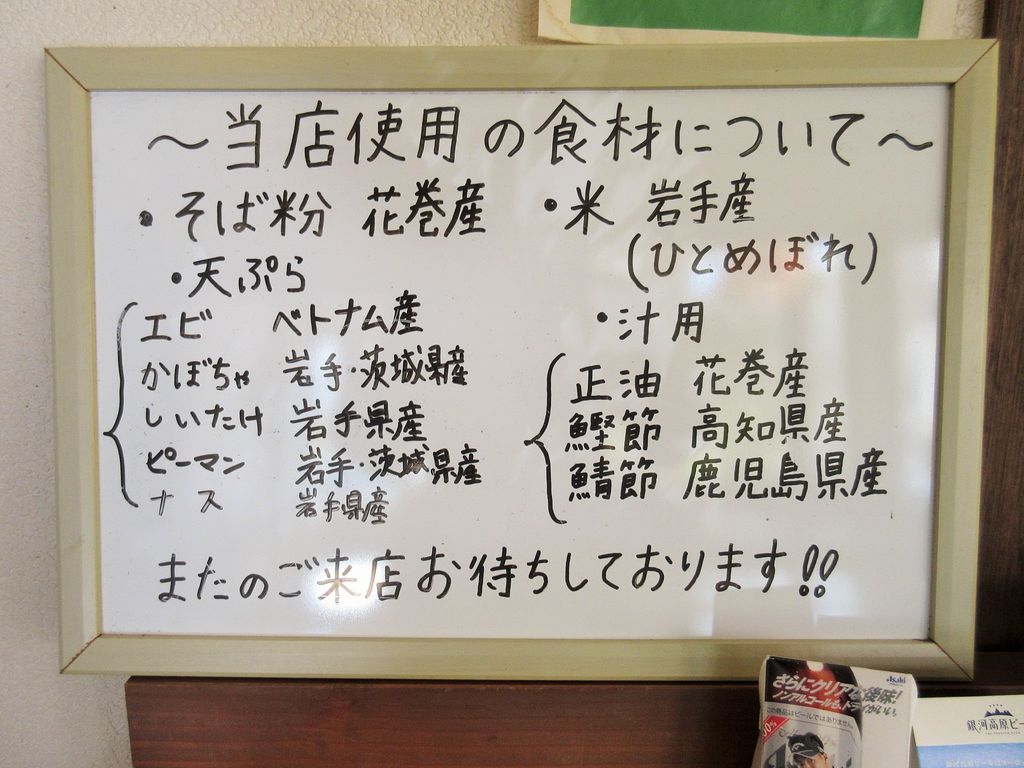 ～当店使用の食材について～
・そば粉 花巻産
・天ぷら
エビ ベトナム産
かぼちゃ 岩手・茨城県産
しいたけ 岩手県産
ピーマン 岩手・茨城県産
ナス 岩手県産
・米 岩手産
(ひとめぼれ)
・汁用
正油 花巻産
鰹節 高知県産
鯖節 鹿児島県産
またのご来店お待ちしております!!
Asahi
さらにクリアな後味!
ノンアルコールも、ドライがいい。
この商品はビールではありません。
銀河高原ビー